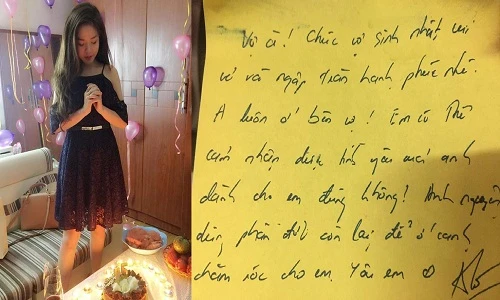 Vợ à! Chúc vợ sinh nhật vui
vẻ và ngập tràn hạnh phúc nhé.
A luôn ở bên vợ! Em có thể
cảm nhận được tình yêu mà anh
dành cho em đúng không! Anh nguyện
dùng phần đời còn lại để ở cạnh
chăm sóc cho em. Yêu em ∞